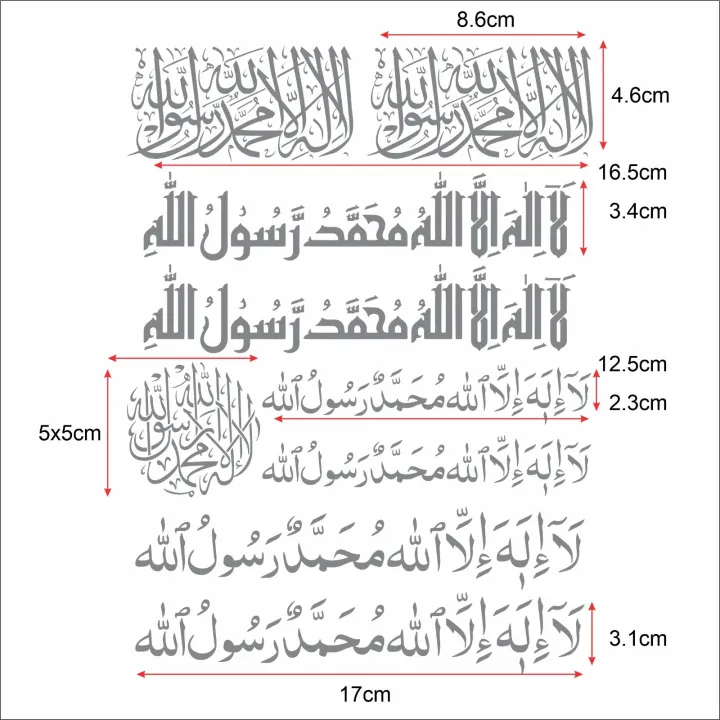 8.6cm
لا إله إلا الله محمد رسول الله لا إله إلا الله محمد رسول الله
4.6cm
16.5cm
لَآ اِلٰهَ اِلَّا اللهُ مُحَمَّدُ رَّسُوْلُ اللهِ
3.4cm
لَآ اِلٰهَ اِلَّا اللهُ مُحَمَّدُ رَّسُوْلُ اللهِ
12.5cm
لَآ إِلَهَ إِلَّا ٱلله مُحَمَّدٌ رَسُولُ ٱلله
2.3cm
لا إله إلا الله محمد رسول الله
5x5cm
لَآ إِلَهَ إِلَّا ٱلله مُحَمَّدٌ رَسُولُ ٱلله
لَآ إِلَهَ إِلَّا ٱلله مُحَمَّدٌ رَسُولُ ٱلله
لَآ إِلَهَ إِلَّا ٱلله مُحَمَّدٌ رَسُولُ ٱلله
3.1cm
17cm